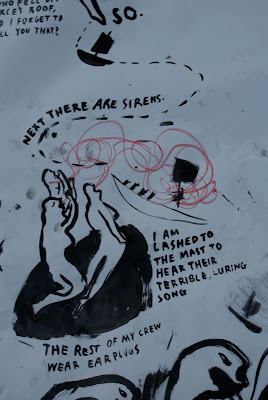 WHO FELL OFF
CIRCE'S ROOF,
DID I FORGET TO
TELL YOU THAT?
SO.
NEXT THERE ARE SIRENS.
I AM
LASHED TO
THE MAST TO
HEAR THEIR
TERRIBLE, LURING
SONG
THE REST OF MY CREW
WEAR EARPLUGS